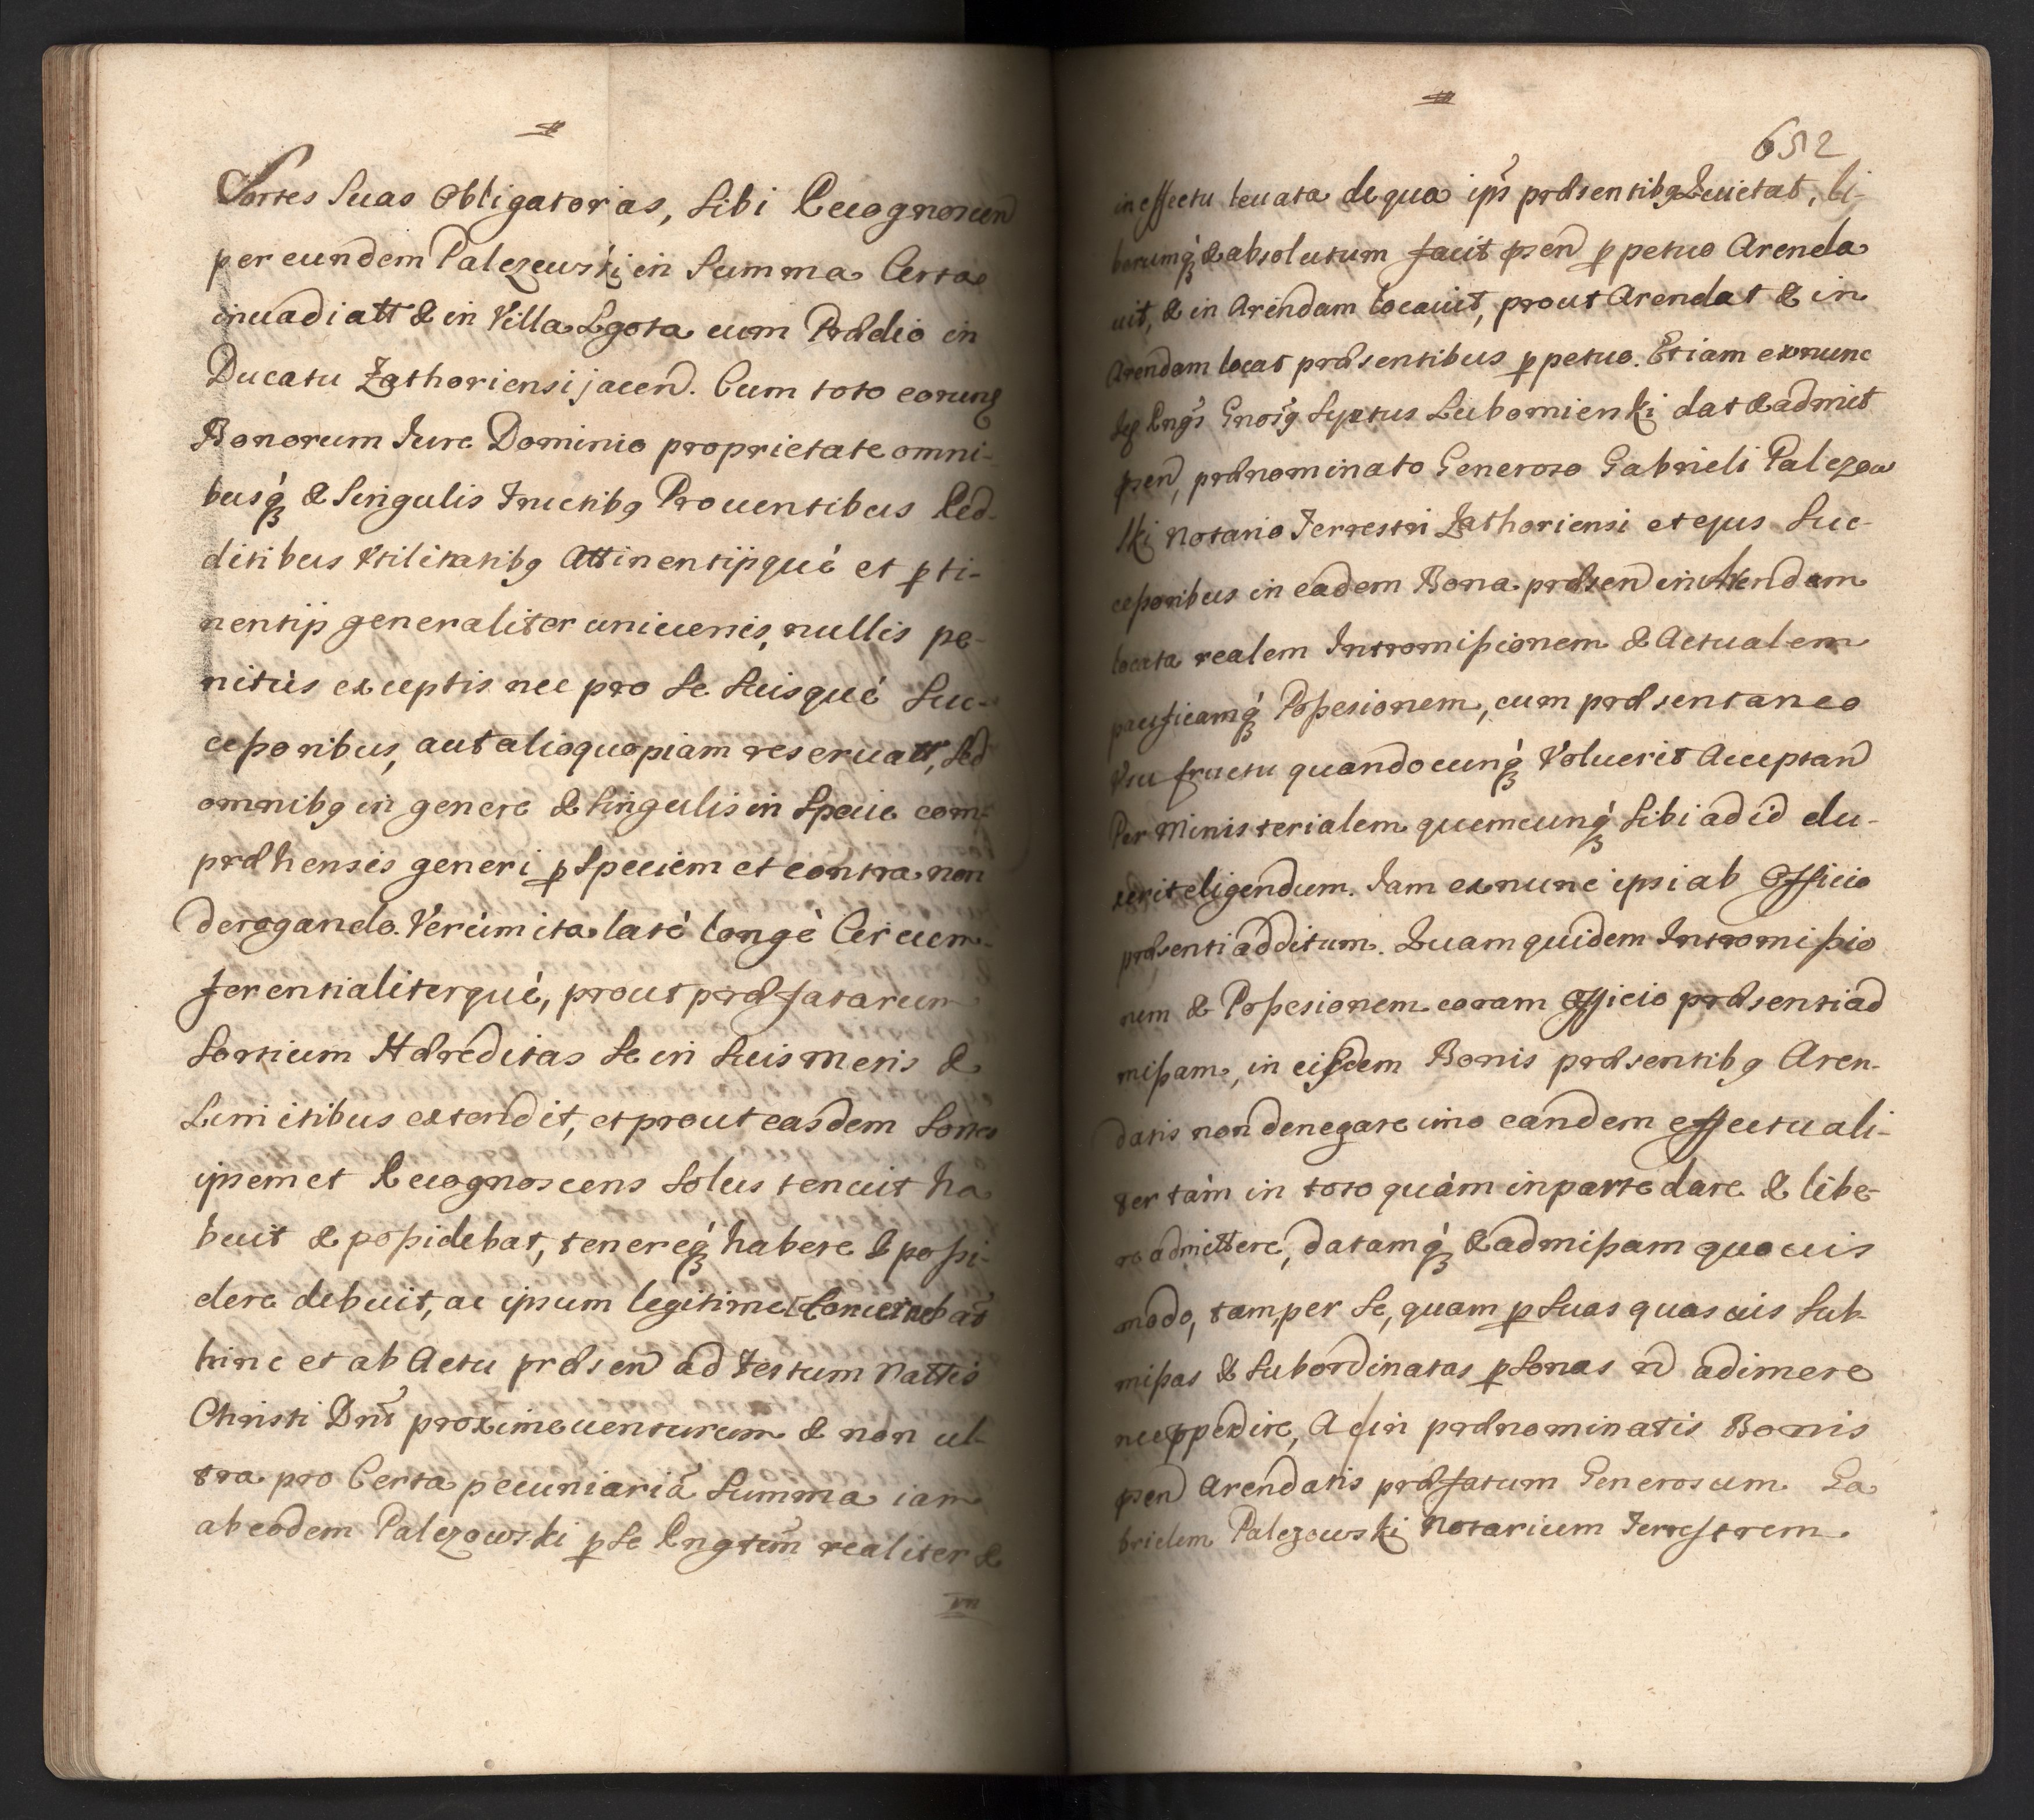 Sortes Suas Obligatorias, Sibi Recognoscen
per eundem Palczewski in Summa Certa
inuadiatt & in Villa Lgota cum Prædio in
Ducatu Zathoriensi jacen. Cum toto eorunq
Bonorum Jure Dominio proprietate omni-
busq́ & Singulis Fructibq Prouentibus Red-
ditibus Vtilitatibq Attinentijsquè et pti-
nentijs generaliter uniuersis, nullis pe-
nitùs exceptis nec pro Se Suisquè Suc-
ceßoribus, aut alioquopiam reseruatt, Sed
omnibq in genere & Singulis in Specie com-
præhensis generi p Speciem et contra non
derogando. Verùm ita latè longè Circum-
ferentialiterquè, prout præfatarum
Sortium Hæreditas Se in Suis meris &
Limitibus extendit, et prout easdem Sortes
ipsemet Recognoscens Solus tenuit ha
buit & poßidebat, tenereq́ habere & poßi-
dere debuit, ac ipsum legitime Concernebat
hinc et ab Actu præsen ad Festum Nattis
Christi Dni proxime uenturum & non ul-
tra pro Certa pecuniariâ Summa iam
ab eodem Palczowski p Se Rngtem realiter &
in
652
in effectu leuata de qua ipš præsentibq Quietat, li-
berumq́ & absolutum facit psen p petuo Arenda
uit, & in Arendam locauit, prout Arendat & in
Arendam locat præsentibus p petuo. Etiam exnunc
Rngs Gnosq Suptus Lubomienski dat & admit
psen, prænominato Generoso Gabrieli Palczow
ski Notario Terrestri Zathoriensi et ejus Suc-
ceßoribus in eadem Bona præsen in Arendam
locata realem Intromißionem & Actualem
pacificamq́ Poßesionem, cum præsentaneo
Vsu fructu quandocunq́ Voluerit Acceptan
Per Ministerialem quemcunq́ Sibi ad id du-
xerit eligendum. Jam exnunc ipsi ab Officio
præsenti additum. Quam quidem Intromißio
nem & Poßesionem coram Officio præsenti ad
mißam, in eisdem Bonis præsentibq Aren-
datis non denegare imo eandem effectuali-
ter tàm in toto quàm in parte dare & libe-
ro admittere, datamq́ & admißam quouis
modo, tam, per Se, quam p Suas quasuis Sub-
mißas & Subordinatas p Sonas ñ adimere
nec ppedire, Ac in prænominatis Bonis
psen Arendatis præfatum Generosum Ga
brielem Palczowski Notarium Terrestrem.